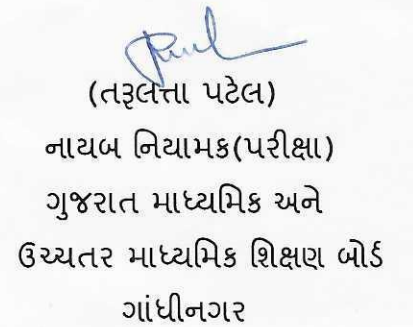 (તરૂલત્તા પટેલ)
નાયબ નિયામક(પરીક્ષા)
ગુજરાત માધ્યમિક અને
ઉચ્ચતર માધ્યમિક શિક્ષણ બોર્ડ
ગાંધીનગર